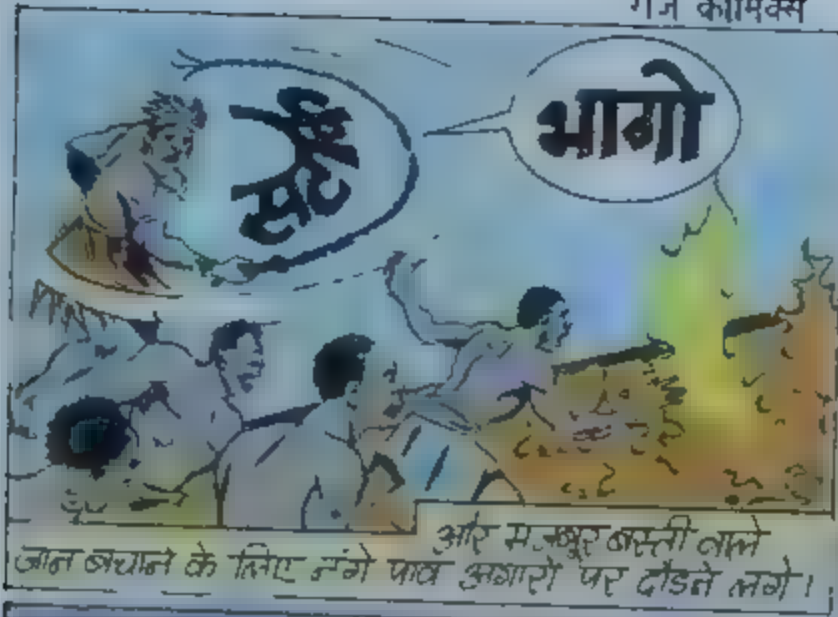 राज कॉमिक्स
सट
भागो
और मजबूर बस्ती वाले
जान बचाने के लिए नंगे पांव अंगारों पर दौडने लगे।